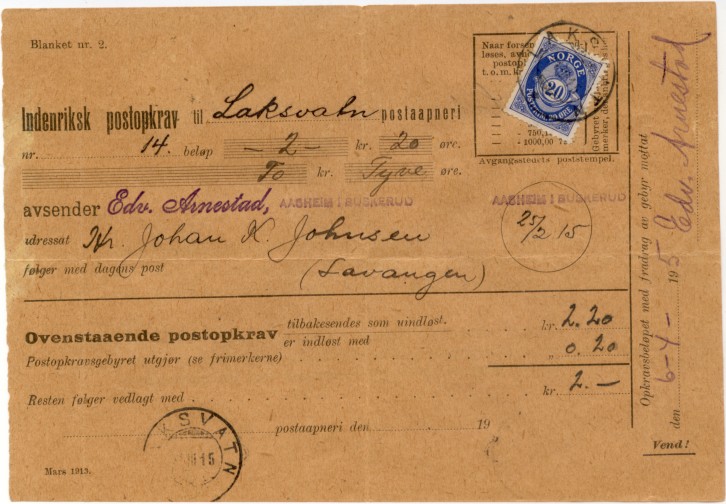 Blanket nr. 2.
Indenriksk postopkrav til Laksvatn postaapneri
nr. 14. beløp — 2 — kr. 20 øre.
To kr. Tyve øre.
avsender Edv. Arnestad, AASHEIM I BUSKERUD
adressat Hr. Johan K. Johnsen
følger med dagens post (Lavangen)
Naar forsen
løses, avh
postopk
t. o. m. kr.
750,
1000,00
Gebyret
merker,
NORGE
20
POSTFRIM. 20 ØRE
LAKS
Avgangsstedets poststempel.
AASHEIM I BUSKERUD
25/2 15
Ovenstaaende postopkrav tilbakesendes som uindløst.
er indløst med kr. 2.20
Postopkravsgebyret utgjør (se frimerkerne) „ 0.20
Resten følger vedlagt med kr. 2.—
postaapneri den 19
KSVATN
15
Mars 1913.
Opkravsbeløpet med fradrag av gebyr mottat
den 6-4- 195 Edv. Arnestad
Vend!